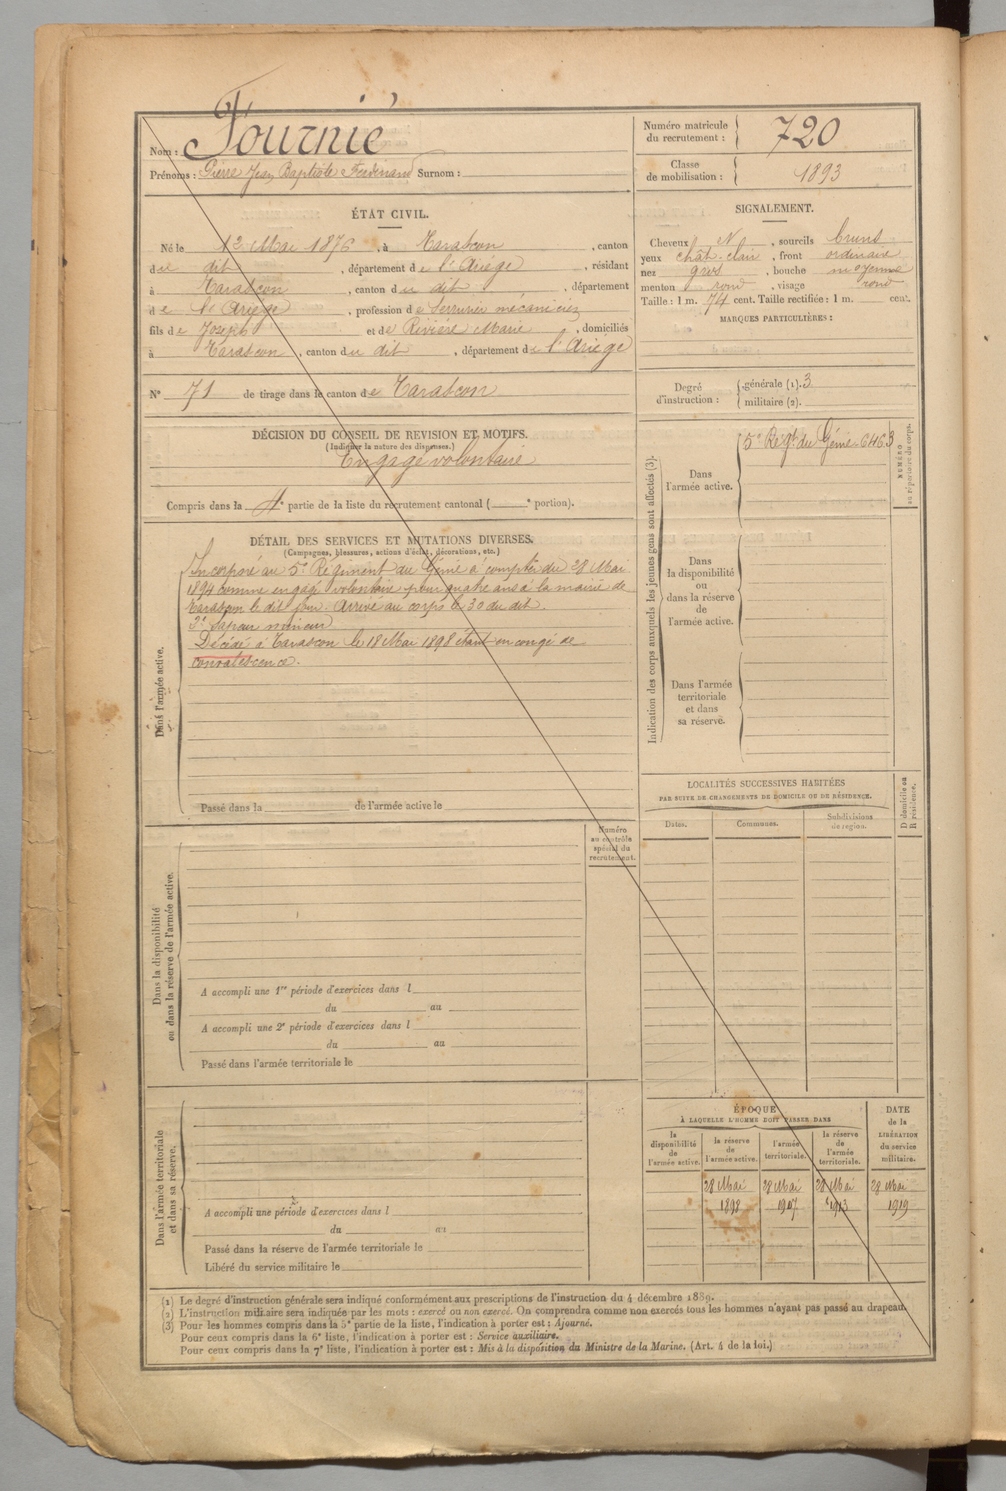 Nom : Fournié
Prénoms : Pierre Jean Baptiste Ferdinand Surnom :
Numéro matricule du recrutement : 720
Classe de mobilisation : 1893
ÉTAT CIVIL.
Né le 12 Mai 1876, à Tarascon, canton
du dit, département de l'Ariége, résidant
à Tarascon, canton du dit, département
de l'Ariége, profession de Serrurier mécanicien
fils de Joseph et de Rivière Marie, domiciliés
à Tarascon, canton du dit, département de l'Ariége
N° 71 de tirage dans le canton de Tarascon
SIGNALEMENT.
Cheveux N, sourcils bruns
yeux chât. clair, front ordinaire
nez gros, bouche moyenne
menton rond, visage rond
Taille : 1 m. 74 cent. Taille rectifiée : 1 m. cent.
MARQUES PARTICULIÈRES :
Degré d'instruction : générale (1). 3
militaire (2).
DÉCISION DU CONSEIL DE REVISION ET MOTIFS.
(Indiquer la nature des dispenses.)
Engagé volontaire
Compris dans la 4e partie de la liste du recrutement cantonal ( e portion).
DÉTAIL DES SERVICES ET MUTATIONS DIVERSES.
(Campagnes, blessures, actions d'éclat, décorations, etc.)
Dans l'armée active.
Incorporé au 5e Régiment du Génie à compter du 28 Mai
1894 comme engagé volontaire pour quatre ans à la mairie de
Tarascon le dit jour. Arrivé au corps le 30 du dit.
2e Sapeur mineur
Décédé à Tarascon le 18 Mai 1898 étant en congé de
convalescence.
Passé dans la de l'armée active le
Indication des corps auxquels les jeunes gens sont affectés (3).
NUMÉRO au répertoire du corps.
Dans l'armée active.
5e Régt du Génie 6463
Dans la disponibilité ou dans la réserve de l'armée active.
Dans l'armée territoriale et dans sa réserve.
LOCALITÉS SUCCESSIVES HABITÉES
PAR SUITE DE CHANGEMENTS DE DOMICILE OU DE RÉSIDENCE.
Dates.
Communes.
Subdivisions de région.
D domicile ou R résidence.
Numéro au contrôle spécial du recrutement.
Dans la disponibilité ou dans la réserve de l'armée active.
A accompli une 1re période d'exercices dans l
du au
A accompli une 2e période d'exercices dans l
du au
Passé dans l'armée territoriale le
Dans l'armée territoriale et dans sa réserve.
A accompli une période d'exercices dans l
du au
Passé dans la réserve de l'armée territoriale le
Libéré du service militaire le
ÉPOQUE
À LAQUELLE L'HOMME DOIT PASSER DANS
la disponibilité de l'armée active.
la réserve de l'armée active.
l'armée territoriale.
la réserve de l'armée territoriale.
DATE de la LIBÉRATION du service militaire.
28 Mai 28 Mai 28 Mai 28 Mai
1898 1907 1913 1919
(1) Le degré d'instruction générale sera indiqué conformément aux prescriptions de l'instruction du 4 décembre 1889.
(2) L'instruction militaire sera indiquée par les mots : exercé ou non exercé. On comprendra comme non exercés tous les hommes n'ayant pas passé au drapeau.
(3) Pour les hommes compris dans la 5e partie de la liste, l'indication à porter est : Ajourné.
Pour ceux compris dans la 6e liste, l'indication à porter est : Service auxiliaire.
Pour ceux compris dans la 7e liste, l'indication à porter est : Mis à la disposition du Ministre de la Marine. (Art. 4 de la loi.)